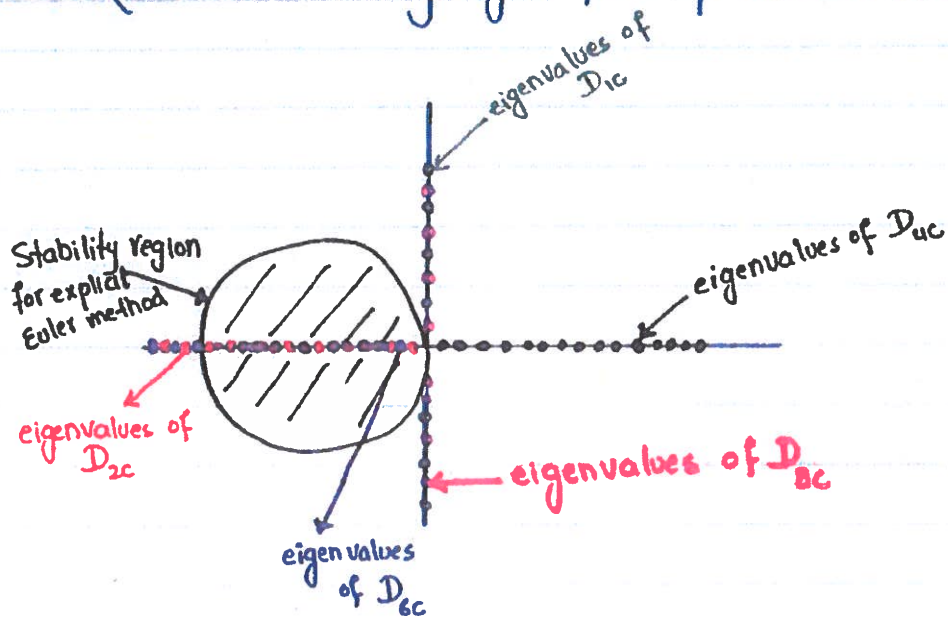 eigenvalues of
D1C
Stability region
for explicit
Euler method
eigenvalues of D4C
eigenvalues of
D2C
eigenvalues of D
eigenvalues
of D6C